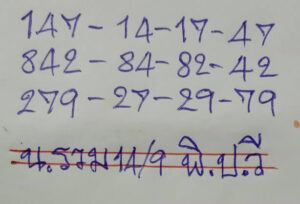 147-14-17-47
842-84-82-42
279-27-29-79
น.รวม 14/9 พิ.ป.วี